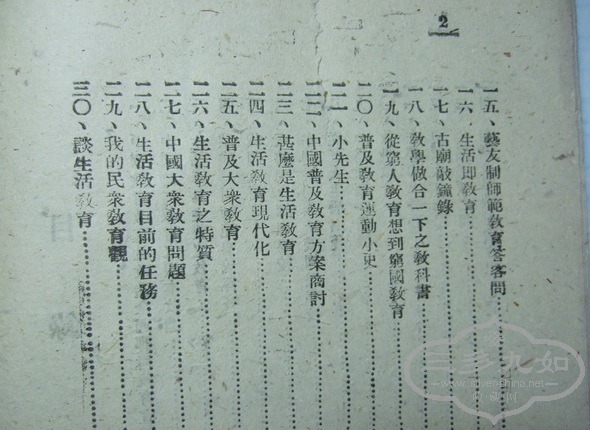 2
一五、藝友制師範教育答客問
一六、生活卽教育
一七、古廟敲鐘錄
一八、教學做合一下之教科書
一九、從窮人教育想到窮國教育
二〇、普及教育運動小史
二一、小先生
二二、中國普及教育方案商討
二三、甚麼是生活教育
二四、生活教育現代化
二五、普及大衆教育
二六、生活教育之特質
二七、中國大衆教育問題
二八、生活教育目前的任務
二九、我的民衆教育觀
三〇、談生活教育
三多九如
收藏網